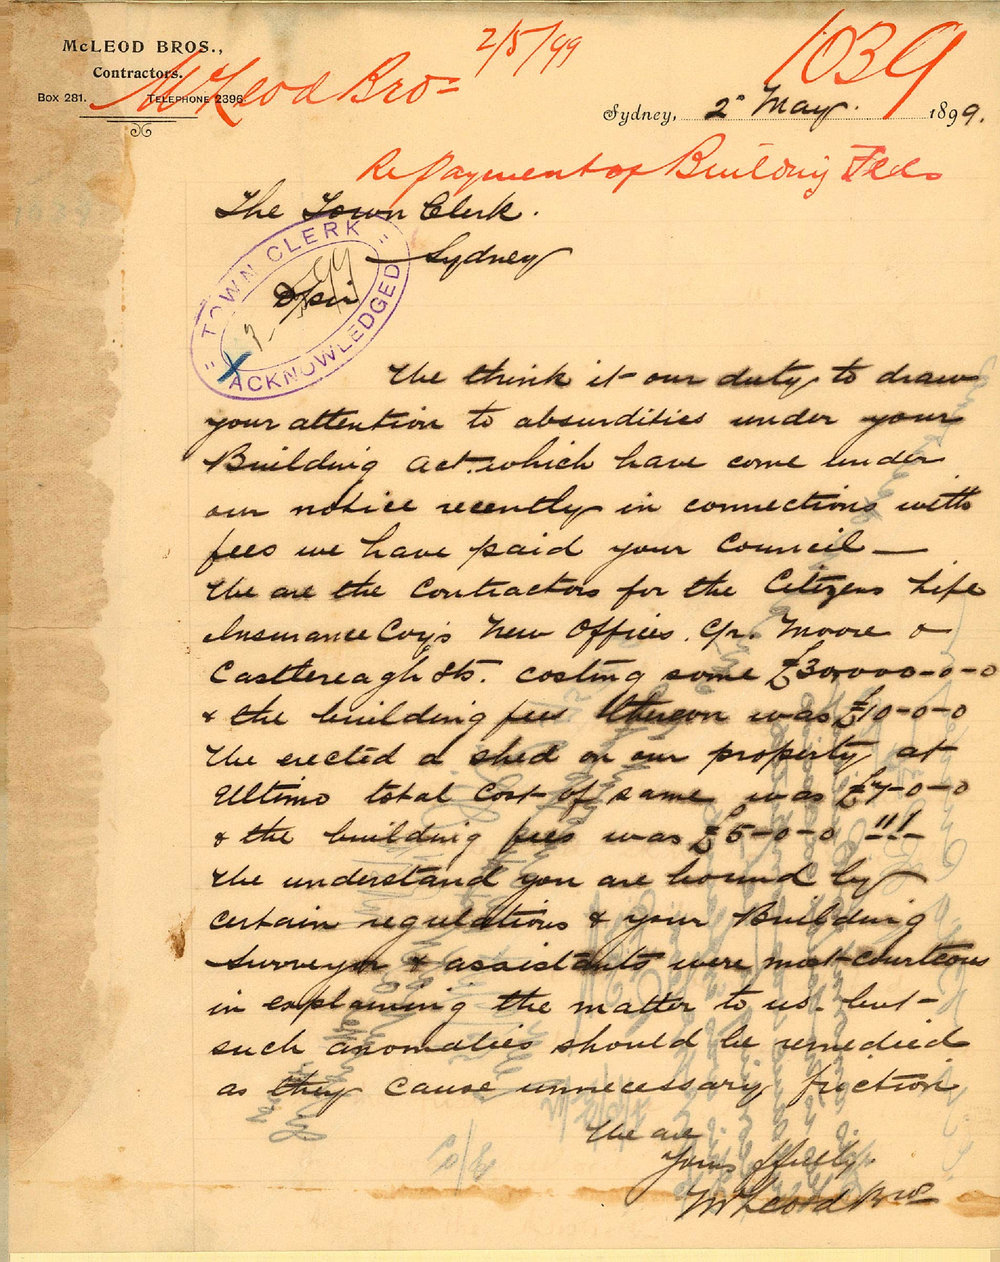 McLEOD BROS.,
Contractors.
Box 281. TELEPHONE 2396.
McLeod Bros
2/5/99
1039
Sydney, 2d May. 1899.
Re Payment of Building Fees
The Town Clerk.
Sydney
D/sir
"TOWN CLERK"
ACKNOWLEDGED
We think it our duty to draw
your attention to absurdities under your
Building Act. which have come under
our notice recently in connections with
fees we have paid your Council —
We are the Contractors for the Citizens Life
Insurance Coy's New Offices. C/r. Moore &
Castlereagh Sts. costing some £30000-0-0
& the building fees thereon was £10-0-0
We erected a shed on our property at
Ultimo total cost of same was £7-0-0
& the building fees was £5-0-0 !!!
We understand you are bound by
certain regulations & your Building
Surveyor & assistants were most courteous
in explaining the matter to us. but-
such anomalies should be remedied
as they cause unnecessary friction
We are
Yours ffully.
McLeod Bros